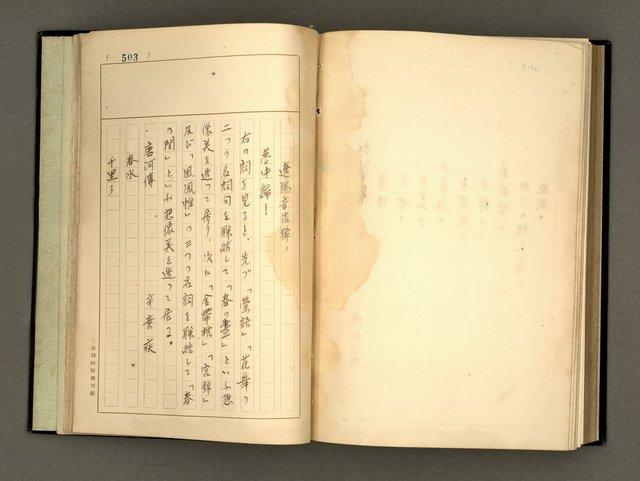 503
遼陽音信稀，
夢中歸！
右の詞を見ると、先づ「鶯語」「花舞の
二つの名詞句を聯結して「春の晝」といふ想
像美を造つて居り、次に「金帶枕」「宮錦」
及び「鳳凰帷」の三つの名詞を聯結して「春
の閨」といふ想像美を造つて居る。
唐河傳 辛棄疾
春水
千里，